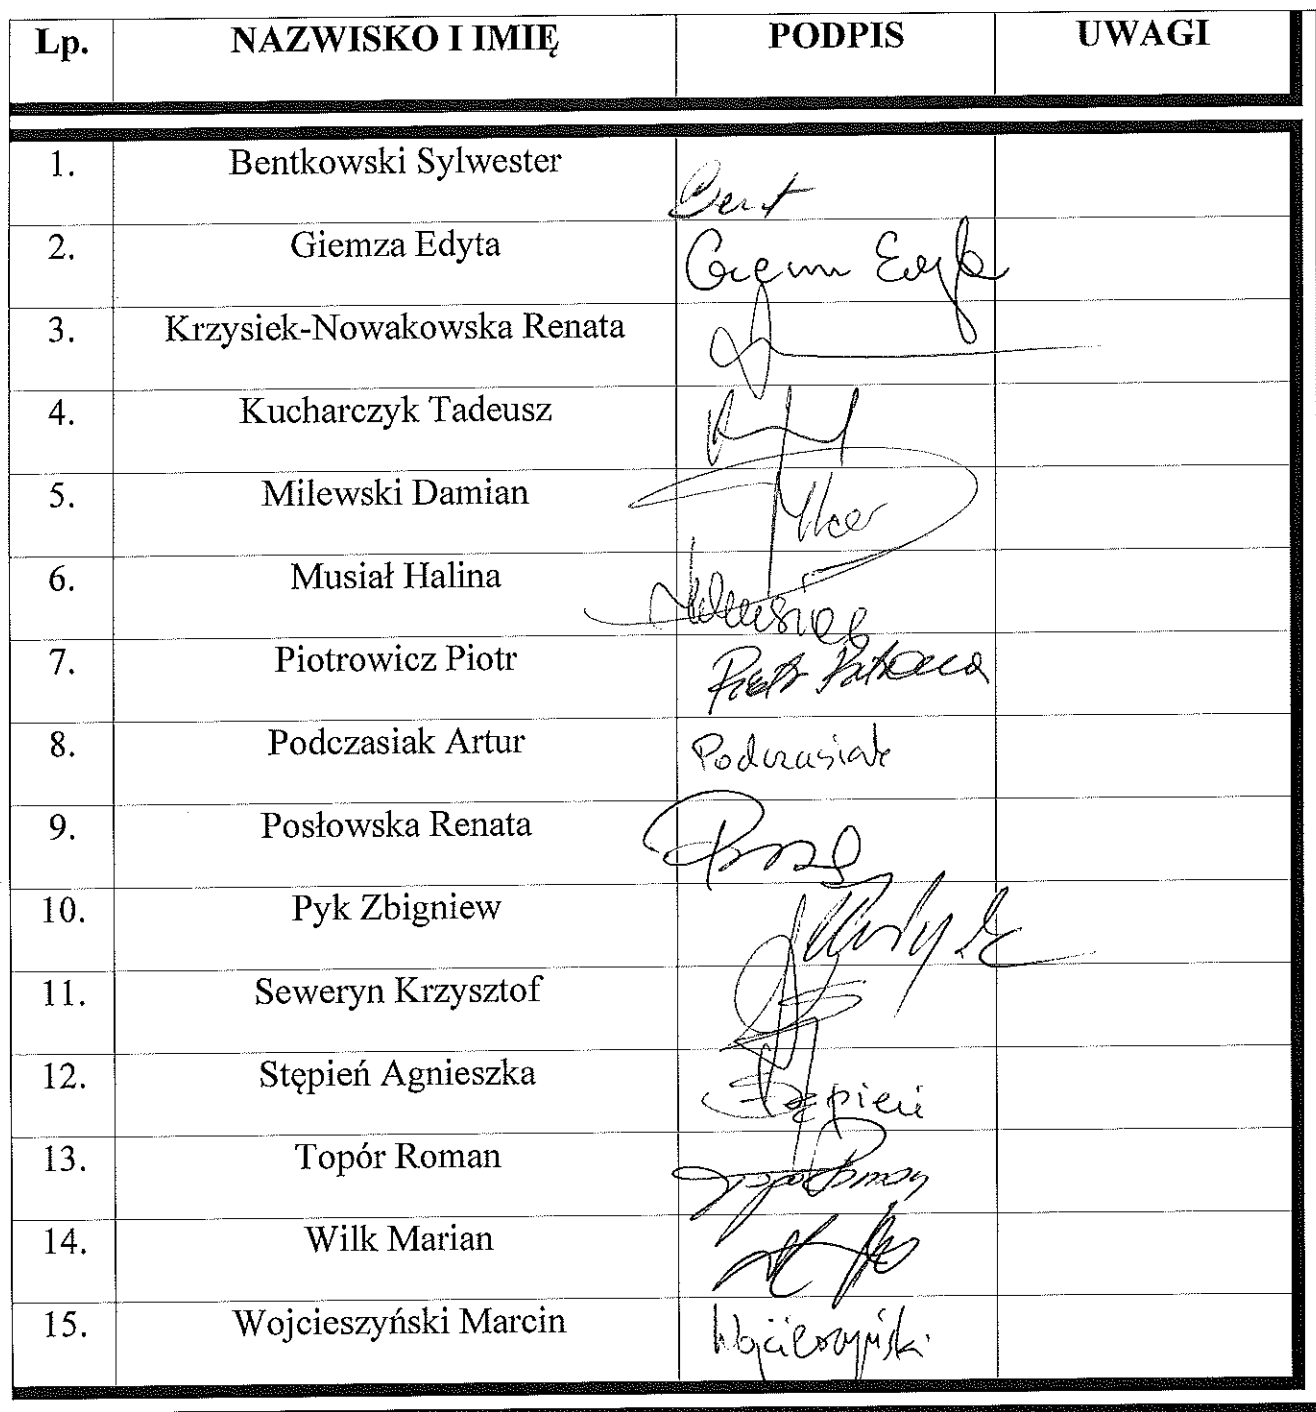 Lp. NAZWISKO I IMIĘ PODPIS UWAGI
1. Bentkowski Sylwester Bent
2. Giemza Edyta
3. Krzysiek-Nowakowska Renata
4. Kucharczyk Tadeusz
5. Milewski Damian
6. Musiał Halina
7. Piotrowicz Piotr
8. Podczasiak Artur Podczasiak
9. Posłowska Renata
10. Pyk Zbigniew
11. Seweryn Krzysztof
12. Stępień Agnieszka Stępień
13. Topór Roman
14. Wilk Marian
15. Wojcieszyński Marcin Wojcieszyński